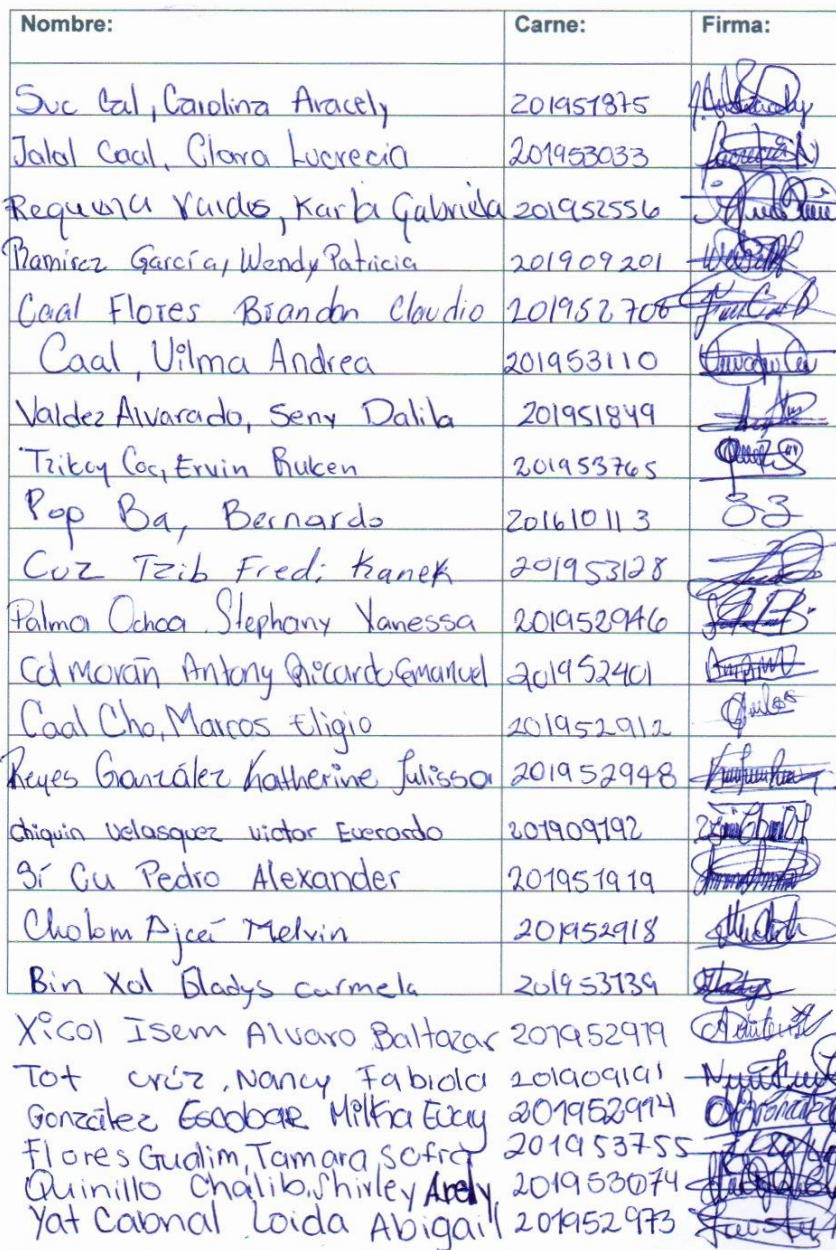 Nombre: Carne: Firma:
Suc Cal, Carolina Aracely 201951875
Jalal Caal, Clara Lucrecia 201953033
Requena Valdes, Karla Gabriela 201952556
Ramirez García, Wendy Patricia 201909201
Caal Flores Brandon Claudio 201952708
Caal, Vilma Andrea 201953110
Valdez Alvarado, Seny Dalila 201951849
Tzikoy Coc, Ervin Ruken 201953765
Pop Ba, Bernardo 201610113
Cuz Tzib Fredi Kanek 201953128
Palma Ochoa Stephany Vanessa 201952946
Col Morán Antony Riccardo Emanuel 201952401
Caal Cho, Marcos Eligio 201952912
Reyes González Katherine Julissa 201952948
chiquin velasquez victor Everardo 201909192
Sí Cu Pedro Alexander 201951919
Cholom Ajceí Melvin 201952918
Bin Xol Gladys carmela 201953139
Xicol Isem Alvaro Baltazar 201952979
Tot crúz, Nancy Fabiola 201909191
González Escobar Miltha Evay 201952914
Flores Gualim, Tamara Sofía 201953755
Quinillo Chalib, Shirley Arely 201953074
Yat Cabnal Loida Abigail 201952973